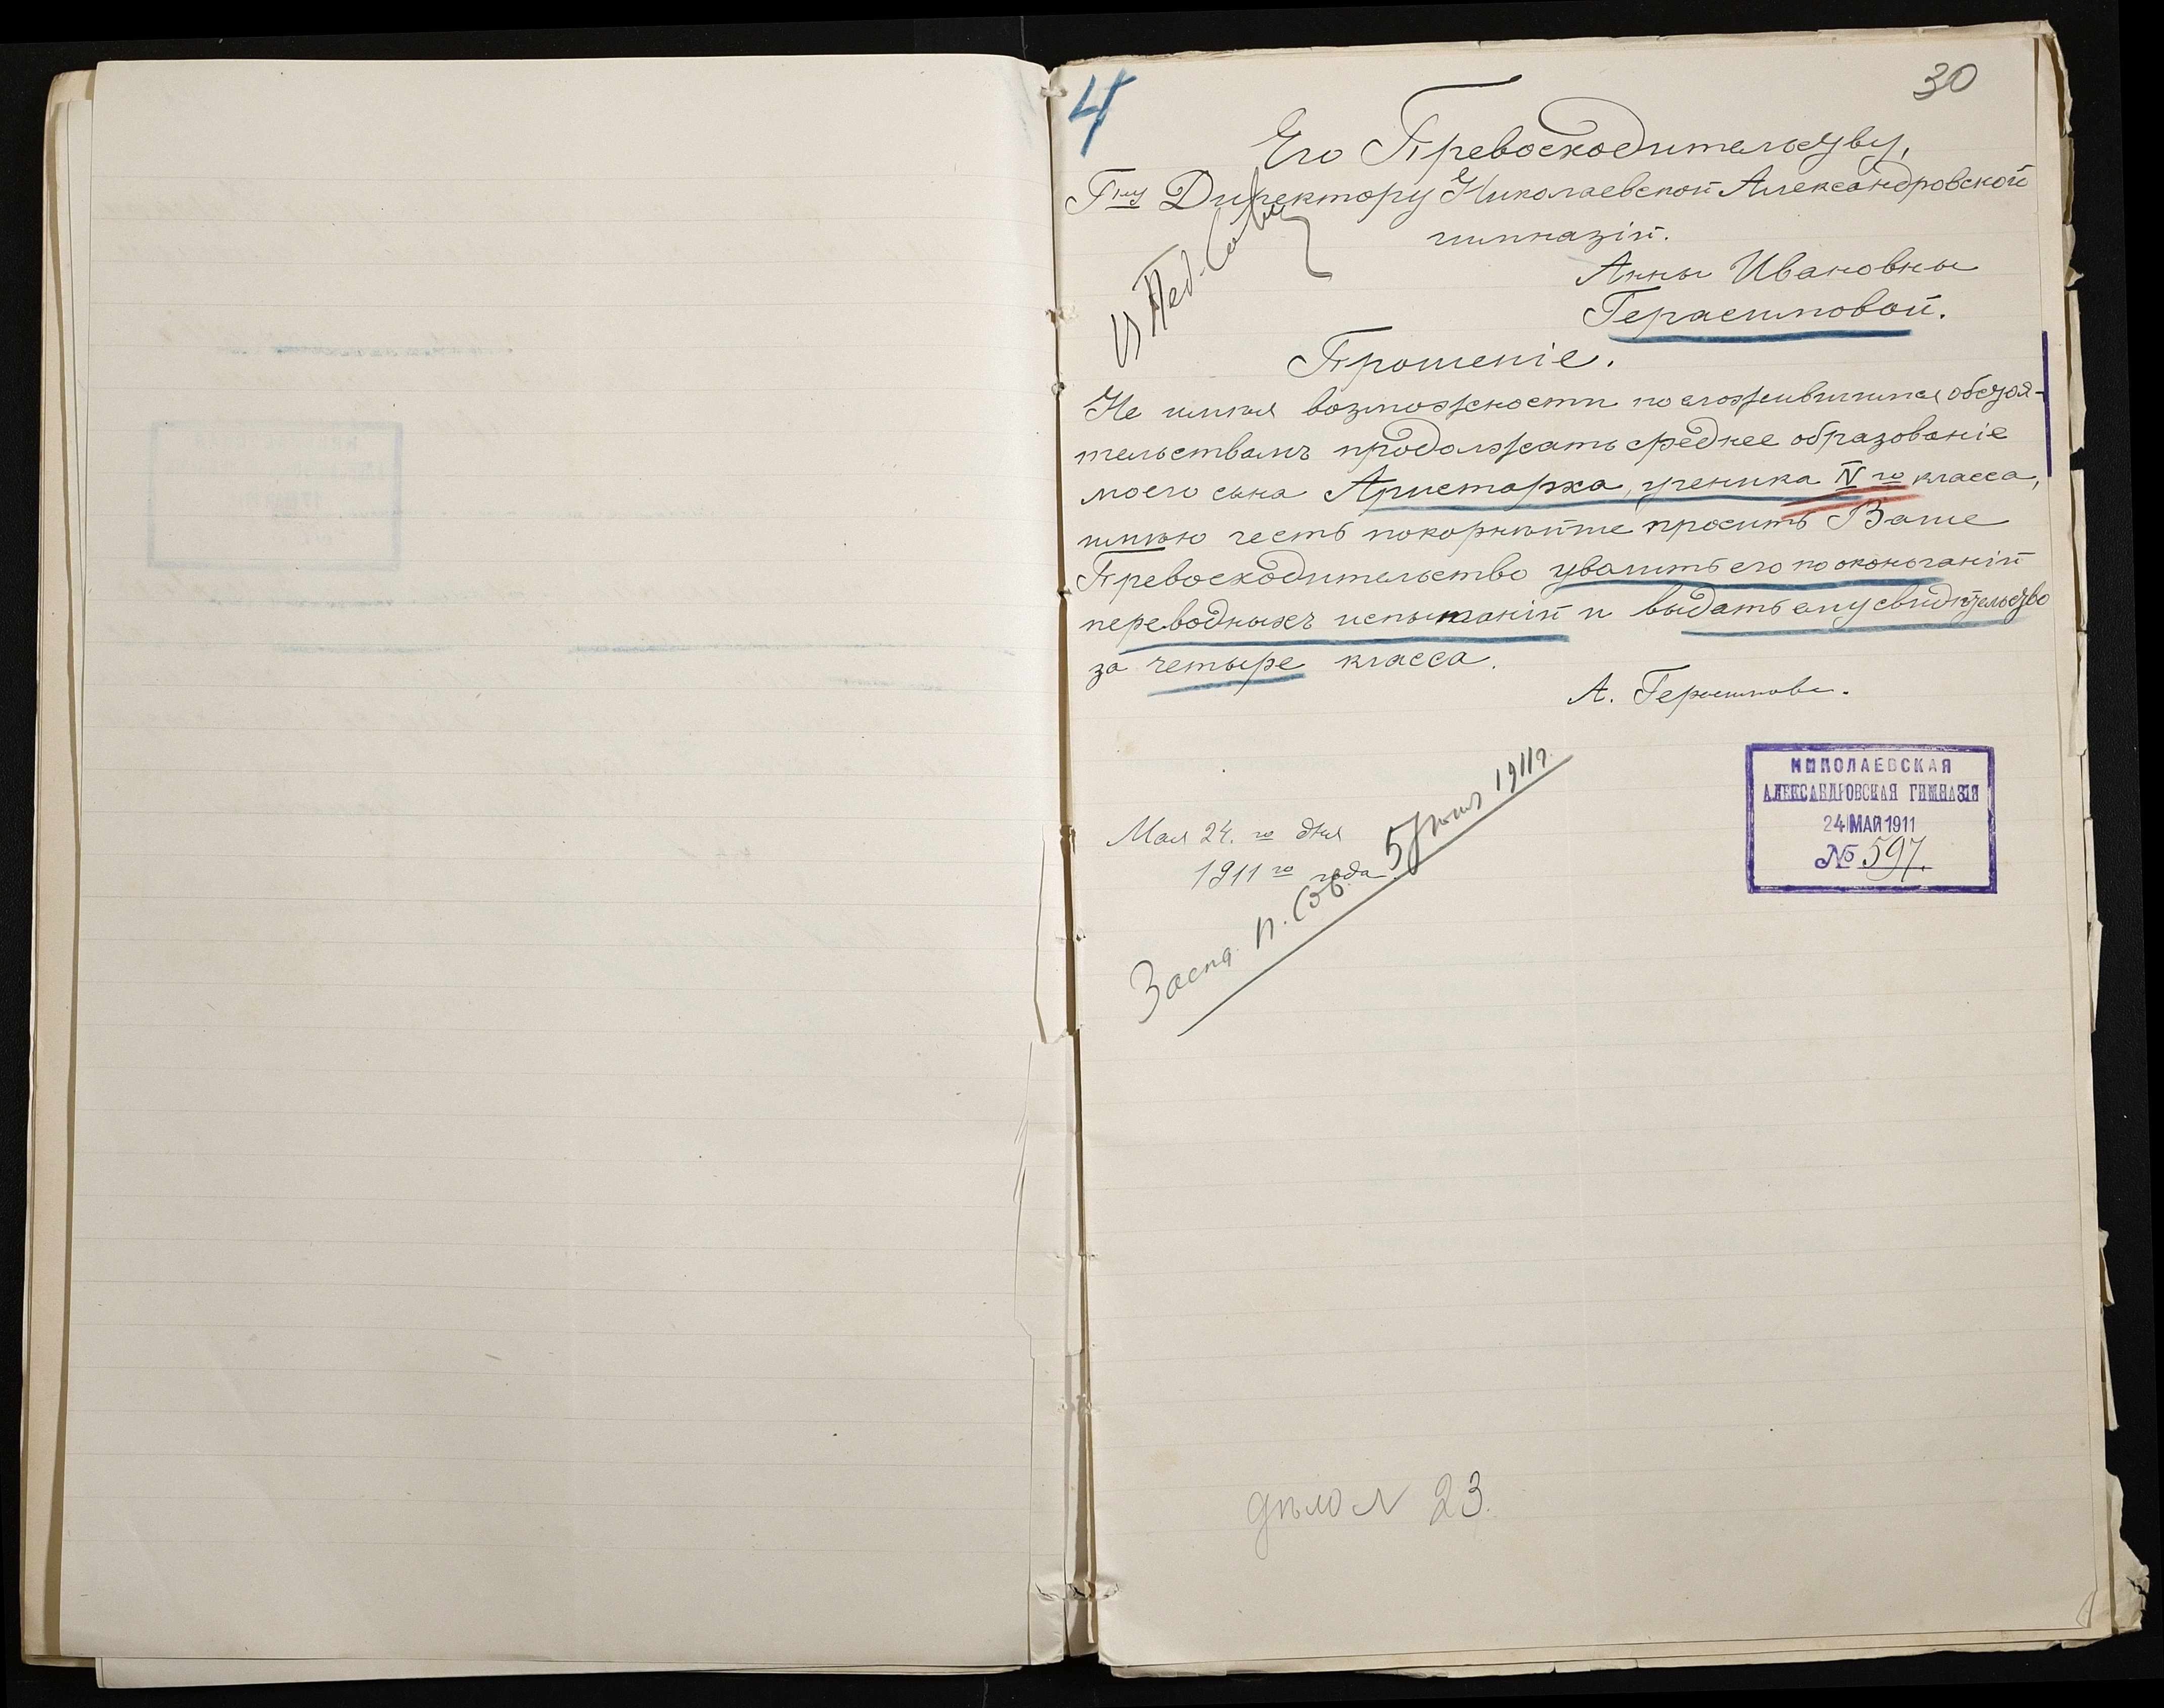 4
30
Его Превосходительству,
Гну Директору Николаевской Александровской
гимназіи.
Анны Ивановны
Герасимовой.
Пед. Сов
Прошеніе.
Не имѣя возможности по сложившимся обстоя-
тельствамъ продолжать среднее образованіе
моего сына Аристарха, ученика IV го класса,
имѣю честь покорнѣйше просить Ваше
Превосходительство уволить его по окончаніи
переводныхъ испытаній и выдать ему свидѣтельство
за четыре класса.
А. Герасимова.
НИКОЛАЕВСКАЯ
АЛЕКСАНДРОВСКАЯ ГИМНАЗІЯ
24 МАЯ 1911
№ 597.
Мая 24. го дня
1911 го года.
Засѣд. П. Сов. 5 Іюня 1911 г.
дѣло № 23.